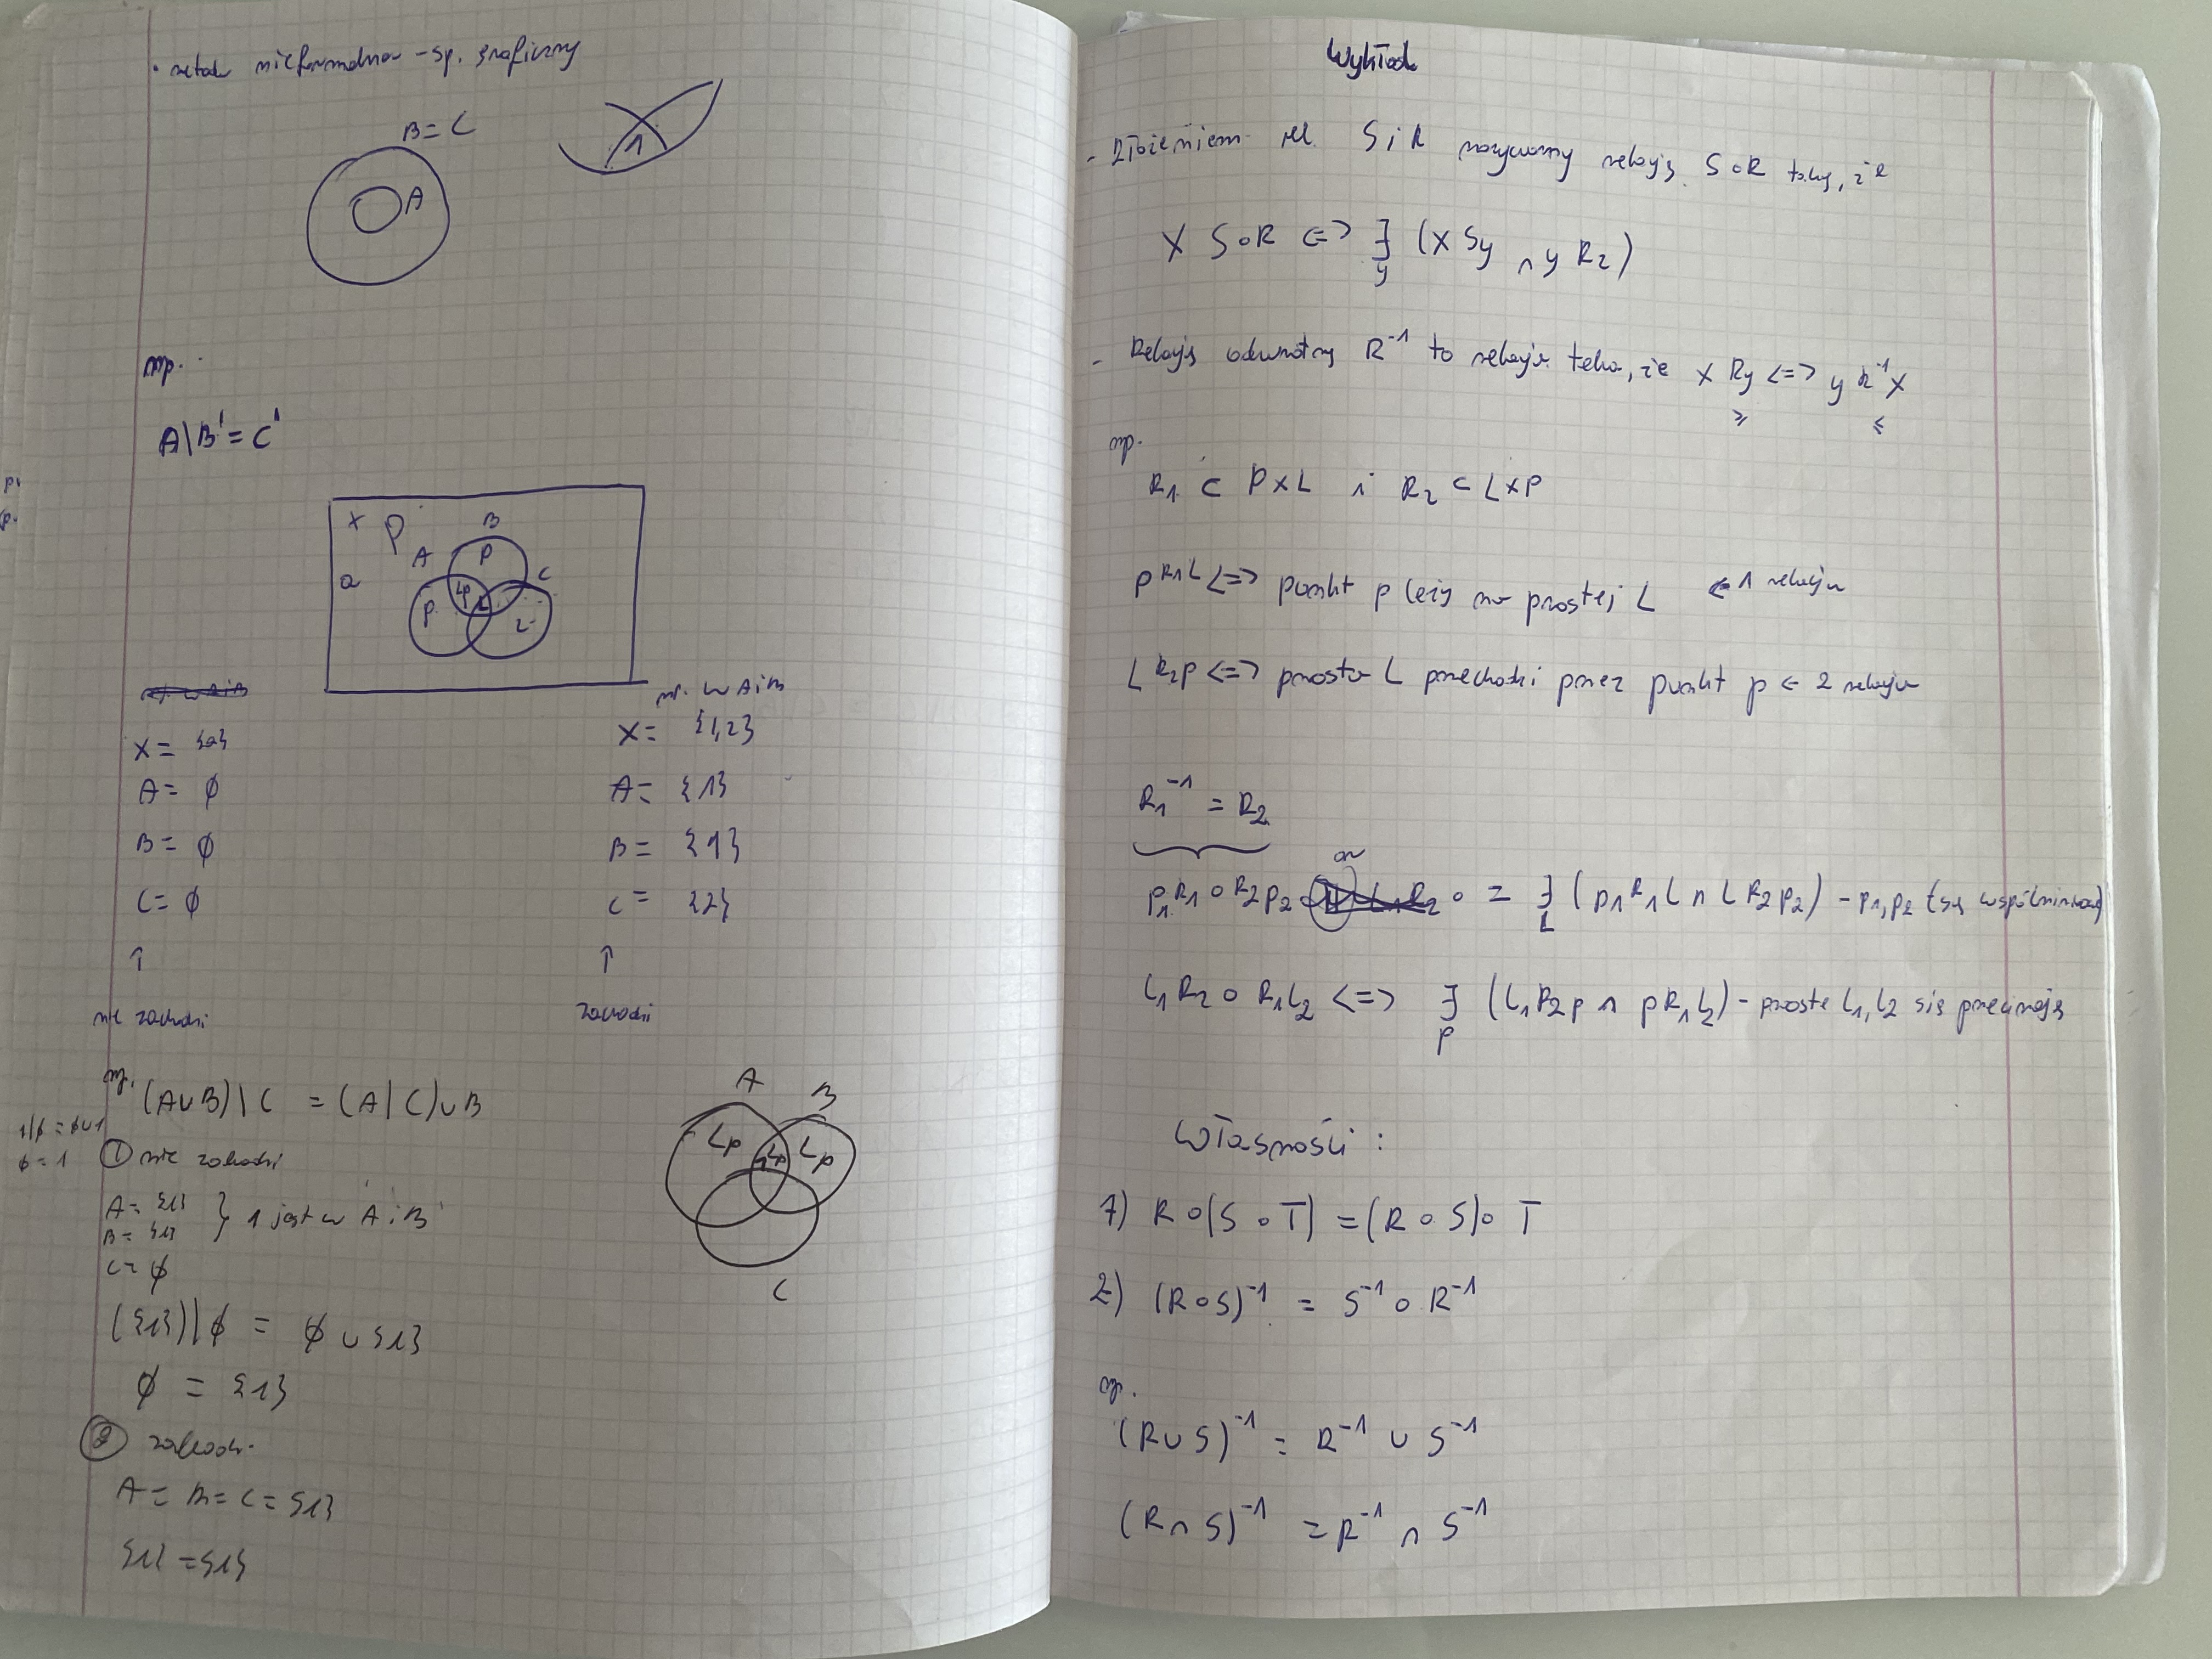 · metoda nieformalna - sp. graficzny
B = C
A
1
np.
A \ B' = C'
X
P
A
B
a
P
P
L
C
np. w A i B
X = {a}
A = ∅
B = ∅
C = ∅
↑
nie zachodzi
X = {1,2}
A = {1}
B = {1}
C = {2}
↑
zachodzi
np. (A∪B) \ C = (A \ C) ∪ B
① nie zachodzi
A = {1}
B = {1}
C = ∅
} 1 jest w A i B
({1}) \ ∅ = ∅ ∪ {1}
∅ = {1}
② zachodzi
A = B = C = {1}
{1} = {1}
A
B
Lp
Lp
C
Wykład
- Złożeniem rel. S i R nazywamy relację S∘R taką, że
X S∘R <=> ∃y (x S y ∧ y R z)
- Relacją odwrotną R⁻¹ to relacja taka, że x R y <=> y R⁻¹ x
np.
R₁ ⊂ P×L i R₂ ⊂ L×P
p R₁ L <=> punkt p leży na prostej L ← 1 relacja
L R₂ p <=> prosta L przechodzi przez punkt p ← 2 relacja
R₁⁻¹ = R₂
p₁ R₁∘R₂ p₂ = ∃L (p₁ R₁ L ∧ L R₂ p₂) - p₁, p₂ (są współliniowe)
L₁ R₂∘R₁ L₂ <=> ∃p (L₁ R₂ p ∧ p R₁ L₂) - proste L₁, L₂ się przecinają
Własności:
1) R∘(S∘T) = (R∘S)∘T
2) (R∘S)⁻¹ = S⁻¹∘R⁻¹
np.
(R∪S)⁻¹ = R⁻¹ ∪ S⁻¹
(R∩S)⁻¹ = R⁻¹ ∩ S⁻¹